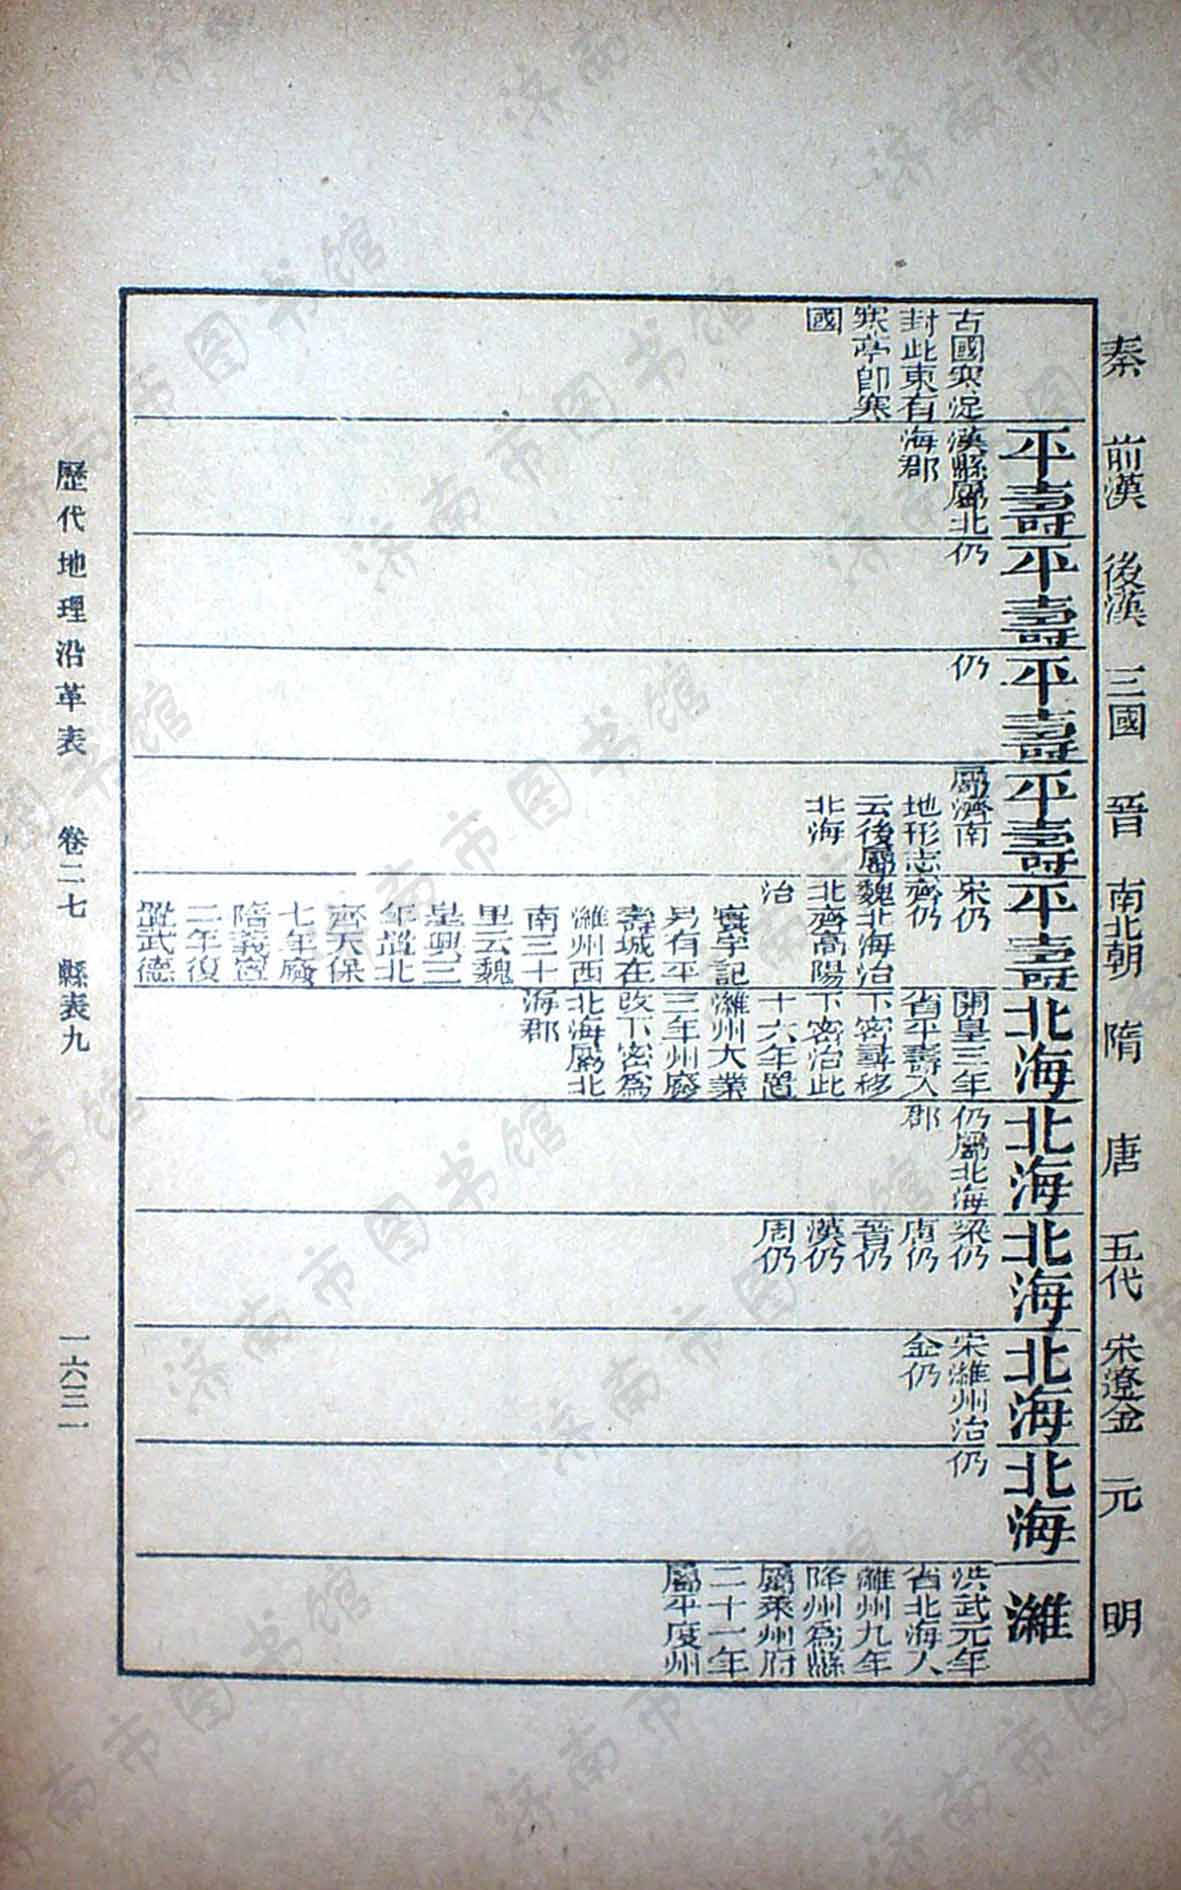 秦 前漢 後漢 三國 晉 南北朝 隋 唐 五代 宋遼金 元 明
古國寒浞
封此東有
寒亭卽寒
國
平壽
漢縣屬北
海郡
平壽
仍
平壽
仍
平壽
屬濟南
地形志
云後屬
北海
平壽
宋仍
齊仍
魏北海治
北齊高陽
治
寰宇記
另有平
壽城在
濰州西
南三十
里云魏
皇興三
年置北
齊天保
七年廢
隋義寧
二年復
置武德
北海
開皇三年
省平壽入
下密尋移
下密治此
十六年置
濰州大業
三年州廢
改下密為
北海屬北
海郡
北海
仍屬北海
郡
北海
梁仍
唐仍
晉仍
漢仍
周仍
北海
宋濰州治
金仍
北海
仍
濰
洪武元年
省北海入
濰州九年
降州為縣
屬萊州府
二十一年
屬平度州
歷代地理沿革表 卷二七 縣表九 一六三一
济南市图书馆